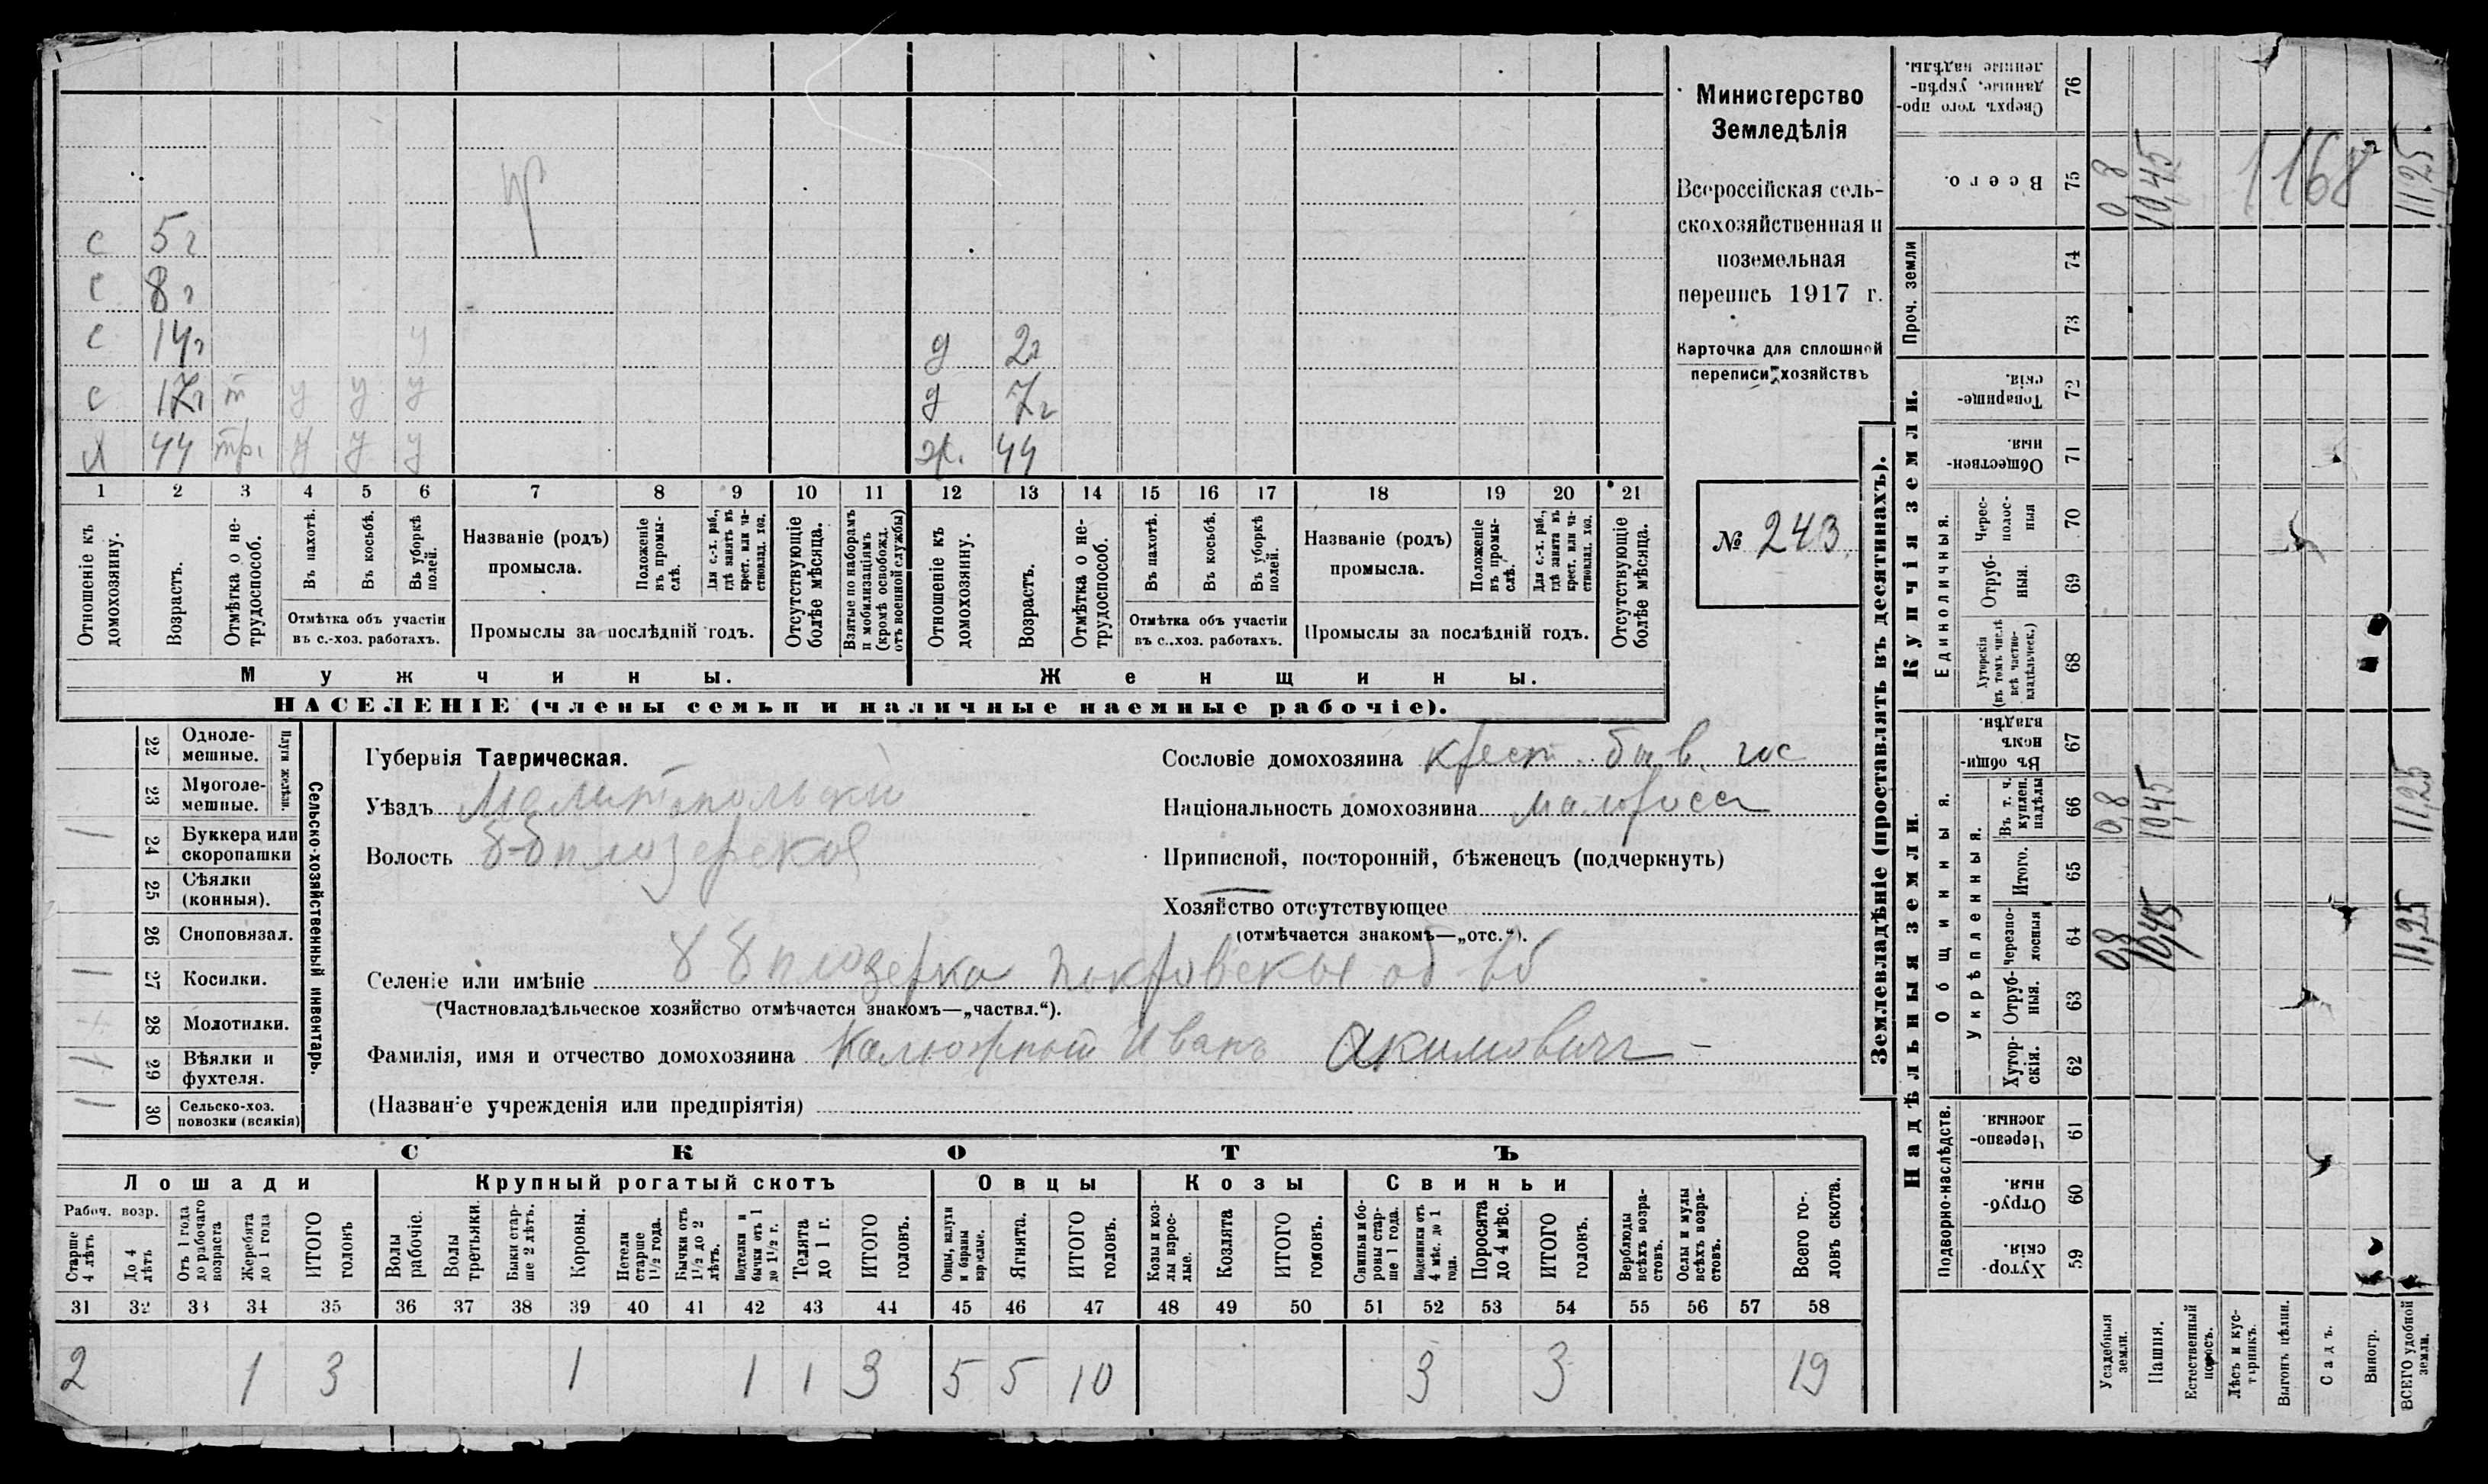 Министерство
Земледѣлія
Всероссійская сель-
скохозяйственная и
поземельная
перепись 1917 г.
Карточка для сплошной
переписи хозяйствъ
№ 243
с 5 г
с 8 г
с 14 г у 2 г
с 17 г т у у у 7 г
х 44 тр. у у у ж. 44
1 2 3 4 5 6 7 8 9 10 11 12 13 14 15 16 17 18 19 20 21
Отношеніе къ домохозяину.
Возрастъ.
Отмѣтка о не-трудоспособ.
Въ пахотѣ.
Въ косьбѣ.
Въ уборкѣ полей.
Отмѣтка объ участіи въ с.-хоз. работахъ.
Названіе (родъ) промысла.
Положеніе въ промы-слѣ.
Для с.-х. раб., гдѣ занятъ въ крест. или ча-стновлад. хоз.
Промыслы за послѣдній годъ.
Отсутствующіе болѣе мѣсяца.
Взятые по наборамъ и мобилизаціямъ (кромѣ освобожд. отъ военной службы)
Отношеніе къ домохозяину.
Возрастъ.
Отмѣтка о не-трудоспособ.
Въ пахотѣ.
Въ косьбѣ.
Въ уборкѣ полей.
Отмѣтка объ участіи въ с..хоз. работахъ.
Названіе (родъ) промысла.
Положеніе въ промы-слѣ.
Для с.-х. раб., гдѣ занята въ крест. или ча-стновлад. хоз.
Промыслы за послѣдній годъ.
Отсутствующіе болѣе мѣсяца.
Мужчины. Женщины.
НАСЕЛЕНІЕ (члены семьи и наличные наемные рабочіе).
Сельско-хозяйственный инвентарь.
Плуги желѣзн.
22 Однолемешные.
23 Многолемешные.
24 Буккера или скоропашки
25 Сѣялки (конныя).
26 Сноповязал.
27 Косилки.
28 Молотилки.
29 Вѣялки и фухтеля.
30 Сельско-хоз. повозки (всякія)
Губернія Таврическая.
Уѣздъ Мелитопольский
Волость
Сословіе домохозяина крест. быв. гос
Національность домохозяина малоросс
Приписной, посторонній, бѣженецъ (подчеркнуть)
Хозяйство отсутствующее
(отмѣчается знакомъ—„отс.“).
Селеніе или имѣніе
(Частновладѣльческое хозяйство отмѣчается знакомъ—„частвл.“).
Фамилія, имя и отчество домохозяина Калюжный Иванъ Акимовичъ
(Названіе учрежденія или предпріятія)
СКОТЪ
Лошади Крупный рогатый скотъ Овцы Козы Свиньи
Рабоч. возр.
Старше 4 лѣтъ
До 4 лѣтъ
Отъ 1 года до рабочаго возраста
Жеребята до 1 года
ИТОГО головъ
Волы рабочіе.
Волы третьяки.
Быки стар-ше 2 лѣтъ.
Коровы.
Нетели старше 1½ года.
Бычки отъ 1½ до 2 лѣтъ.
Подтелки и бычки отъ 1 до 1½ г.
Телята до 1 г.
ИТОГО головъ.
Овцы, валухи и бараны взрослые.
Ягнята.
ИТОГО головъ.
Козы и коз-лы взрос-лые.
Козлята
ИТОГО головъ.
Свиньи и бо-ровы стар-ше 1 года.
Подсвинки отъ 4 мѣс. до 1 года.
Поросята до 4 мѣс.
ИТОГО головъ.
Верблюды всѣхъ возра-стовъ.
Ослы и мулы всѣхъ возра-стовъ.
Всего го-ловъ скота.
31 32 33 34 35 36 37 38 39 40 41 42 43 44 45 46 47 48 49 50 51 52 53 54 55 56 57 58
2 1 3 1 1 1 3 5 5 10 3 3 19
Землевладѣніе (проставлять въ десятинахъ).
Надѣльныя земли. Купчія земли.
Проч. земли
Подворно-наслѣдств.
Общинныя.
Укрѣпленныя.
Единоличныя.
59 Хутор-скія.
60 Отруб-ныя.
61 Черезпо-лосныя
62 Хутор-скія.
63 Отруб-ныя.
64 Черезпо-лосныя
65 Итого.
66 Въ т. ч. куплен. надѣлы
67 Въ общин-номъ владѣн.
68 Хуторскія (въ томъ числѣ всѣ частно-владѣльческ.)
69 Отруб-ныя.
70 Черес-полос-ныя
71 Обществен-ныя
72 Товарище-скія.
73
74
75 Всего.
76 Сверхъ того про-данные, укрѣп-ленные надѣлы.
Усадебныя земли. 0,8 0,8 0,8
Пашня. 10,45 10,45 10,45
Естественный покосъ.
Лѣсъ и кус-тарникъ.
Выгонъ цѣлин.
Садъ.
Виногр.
ВСЕГО удобной земли. 11,25 11,25 11,25
1168